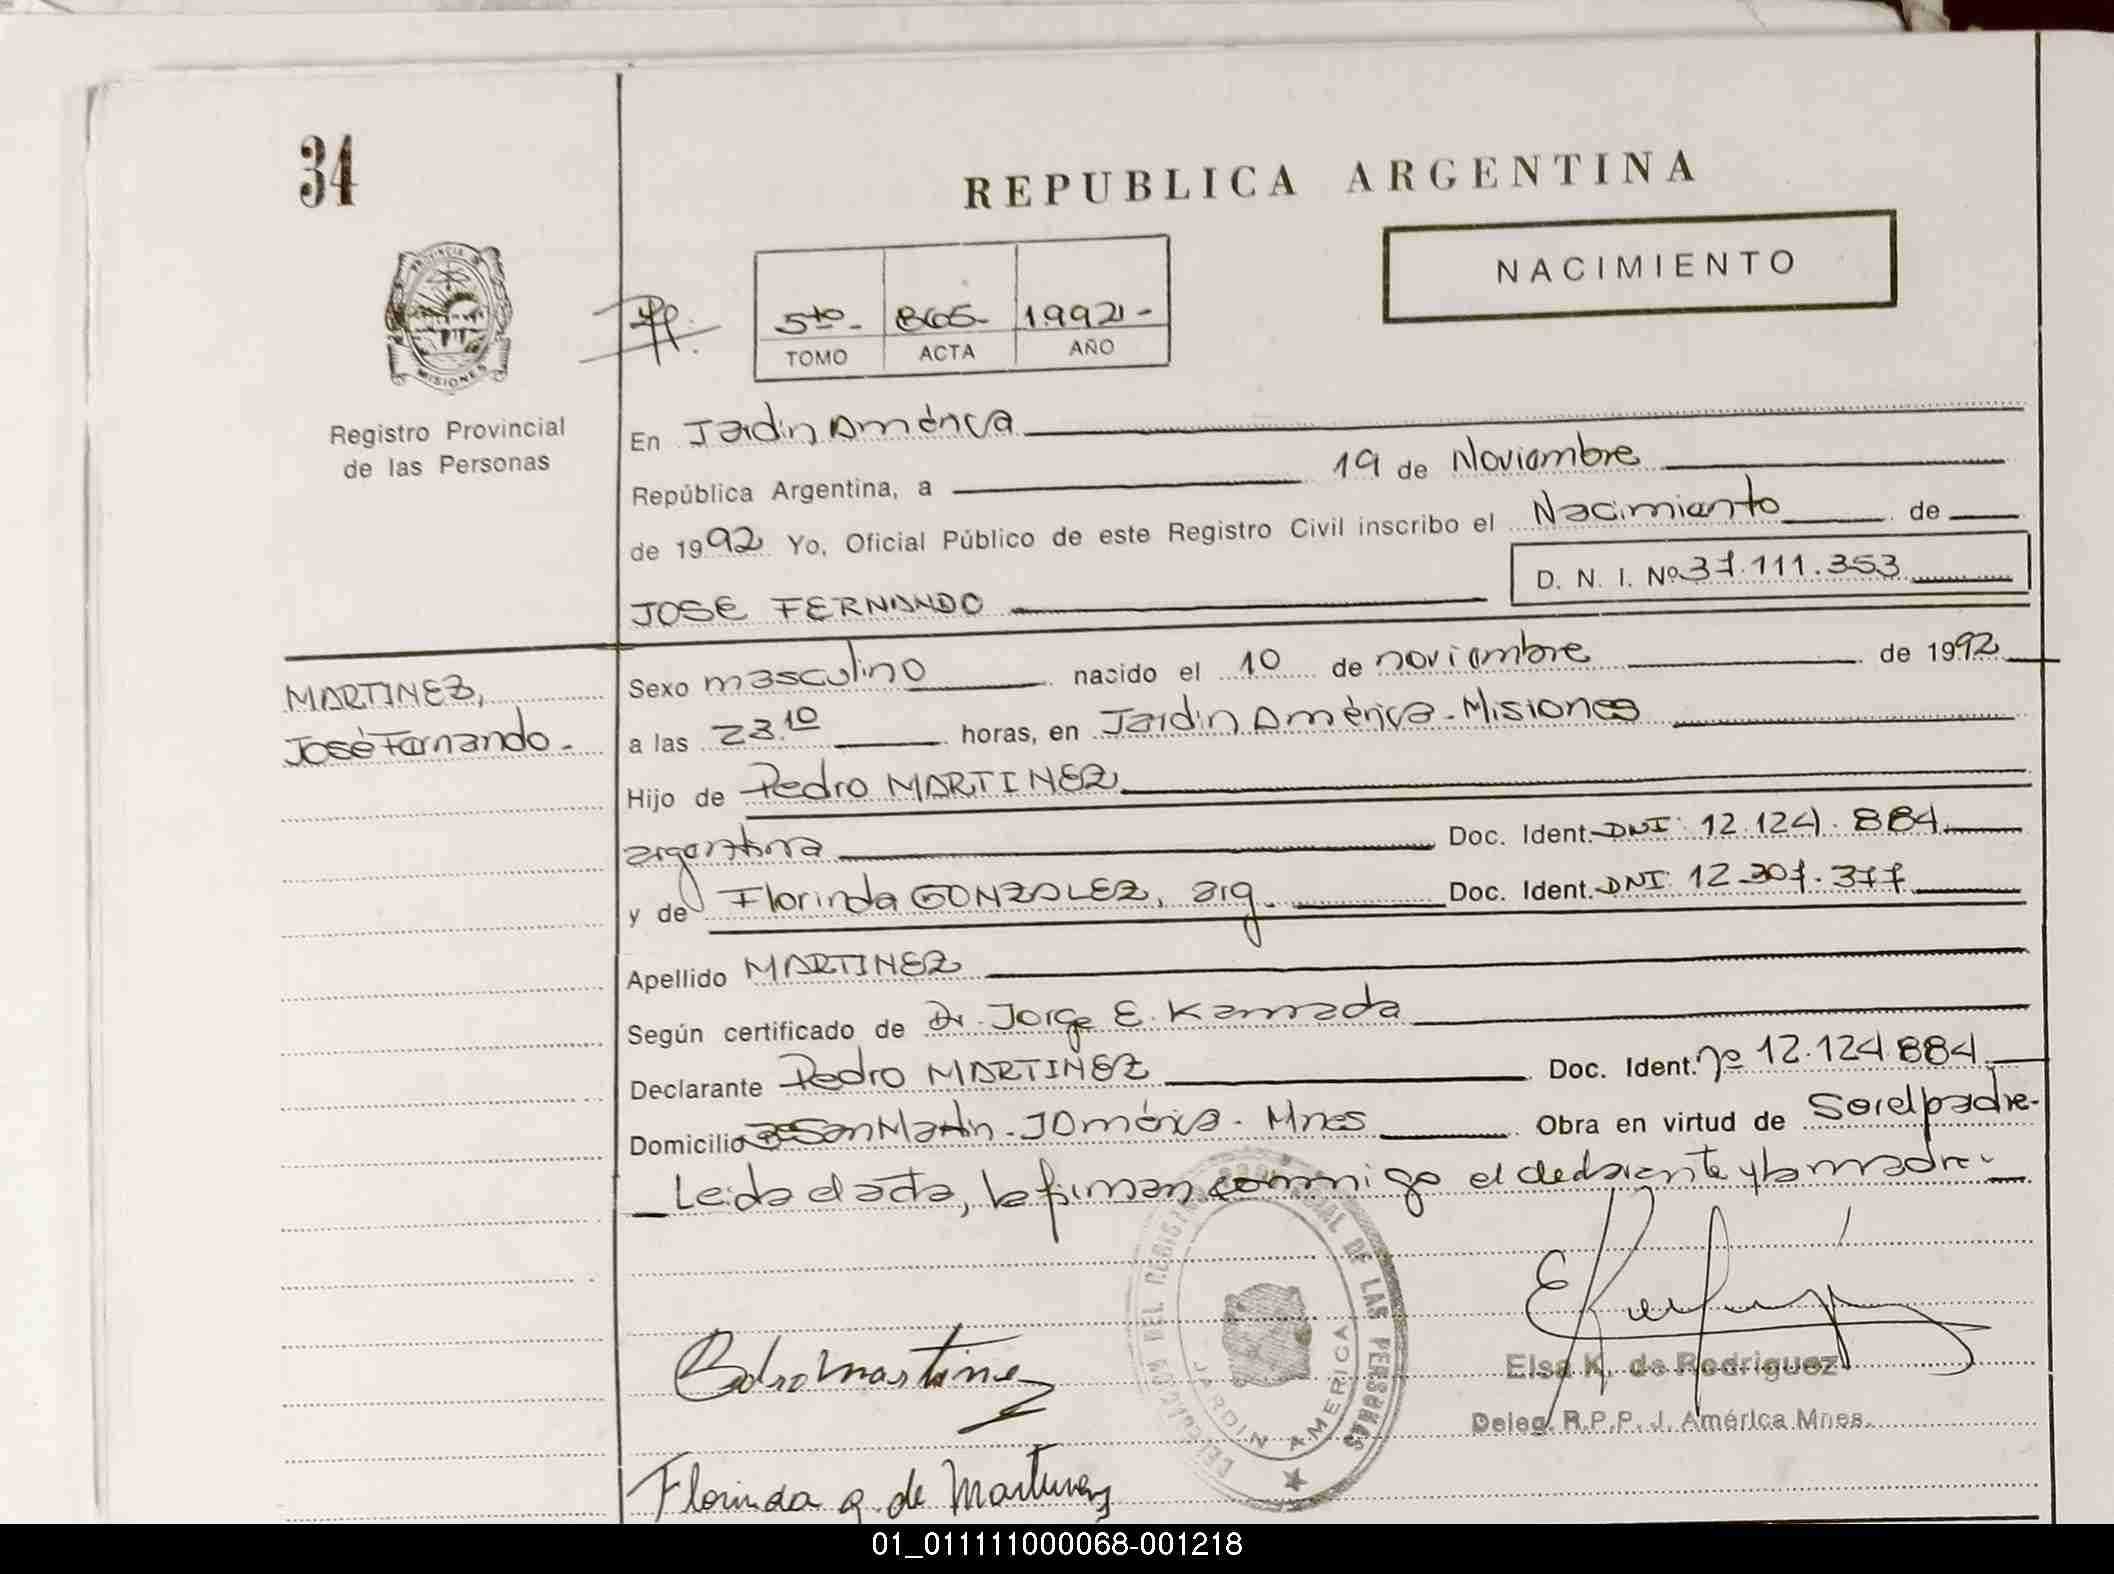 34
REPUBLICA ARGENTINA
NACIMIENTO
PROVINCIA DE
MISIONES
Registro Provincial
de las Personas
5to- 865- 1992-
TOMO ACTA AÑO
En Jardin América
República Argentina, a 19 de Noviembre
de 1992 Yo, Oficial Público de este Registro Civil inscribo el Nacimiento de
D. N. I. Nº 37.111.353
JOSE FERNANDO
MARTINEZ,
José Fernando-
Sexo masculino nacido el 10 de noviembre de 1992
a las 23.10 horas, en Jardin América-Misiones
Hijo de Pedro MARTINEZ
argentina Doc. Ident. DNI: 12.124.884
y de Florinda GONZALEZ, arg. Doc. Ident. DNI: 12.307.377
Apellido MARTINEZ
Según certificado de Dr. Jorge E. Kamada
Declarante Pedro MARTINEZ Doc. Ident. nº 12.124.884
Domicilio Bº San Martin-J América-Mnes Obra en virtud de Ser el padre-
Leida el acta, la firman conmigo el declarante y la madre-
DELEGACION DEL REGISTRO PROVINCIAL DE LAS PERSONAS
JARDIN AMERICA
Pedro Martinez
Elsa K. de Rodriguez
Deleg. R.P.P. J. América Mnes.
Florinda g. de Martinez
01_011111000068-001218